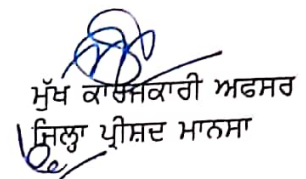 ਮੁੱਖ ਕਾਰਜਕਾਰੀ ਅਫਸਰ
ਜ਼ਿਲ੍ਹਾ ਪ੍ਰੀਸ਼ਦ ਮਾਨਸਾ